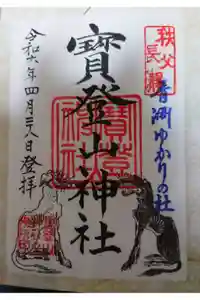 秩父
長瀞
青淵ゆかりの社
寳登山神社
令和六年四月二八日登拝